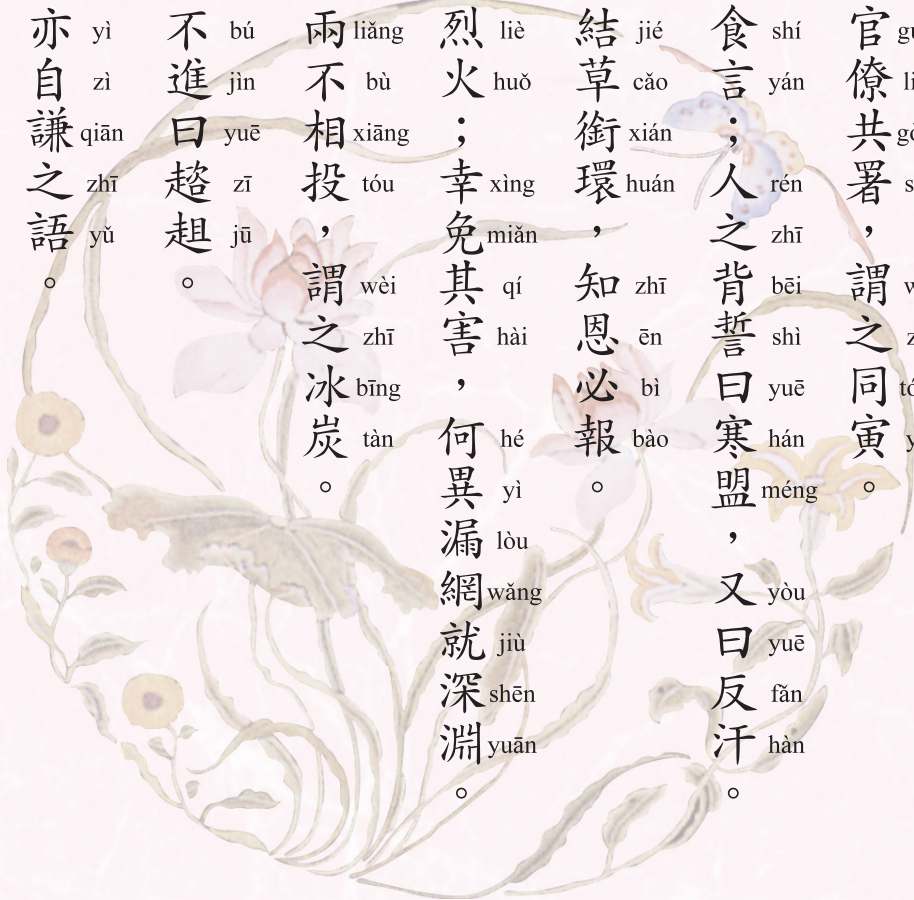 官僚共署，謂之同寅。
食言；人之背誓曰寒盟，又曰反汗。
shí yán rén zhī bēi shì yuē hán méng yòu yuē fǎn hàn
結草銜環，知恩必報。
jié cǎo xián huán zhī ēn bì bào
烈火；幸免其害，何異漏網就深淵。
liè huǒ xìng miǎn qí hài hé yì lòu wǎng jiù shēn yuān
兩不相投，謂之冰炭。
liǎng bù xiāng tóu wèi zhī bīng tàn
不進曰趑趄。
bú jìn yuē zī jū
亦自謙之語。
yì zì qiān zhī yǔ